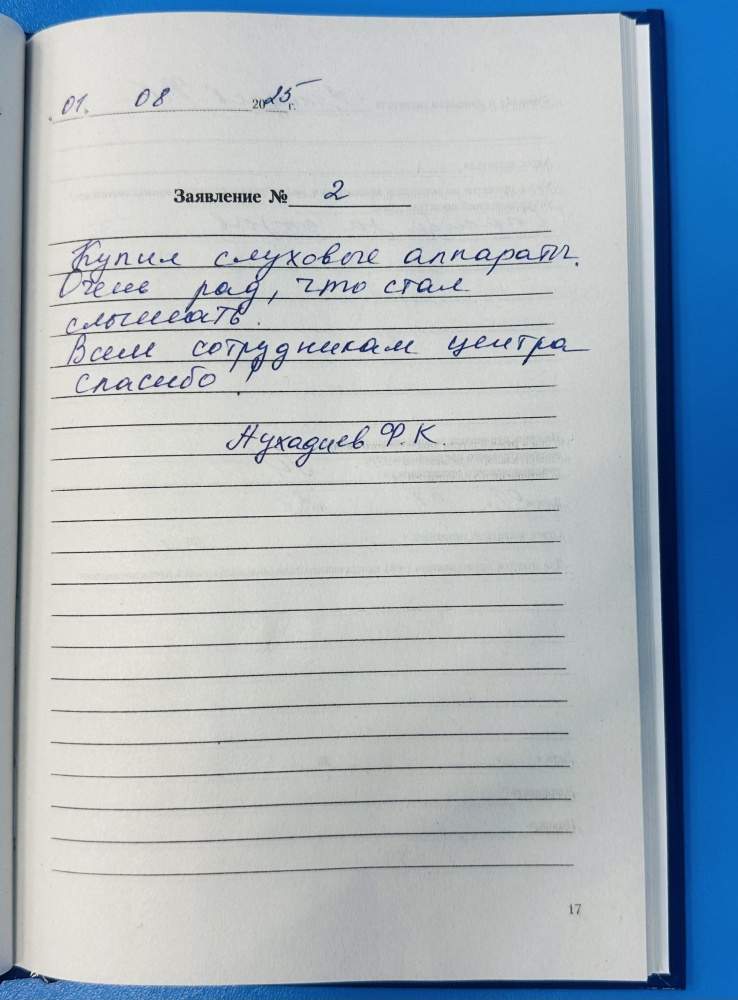 01. 08 2025 г.
Заявление № 2
Купил слуховые аппараты.
Очень рад, что стал
слышать.
Всем сотрудникам центра
спасибо!
Аухадиев Ф.К.
17